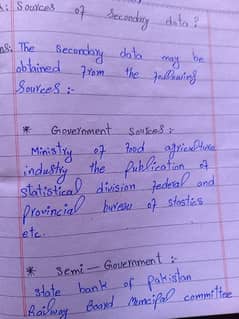 : Sources of Secondary data?
ns: The Secondary data may be
obtained from the following
Sources :-
* Government Sources :-
Ministry of food agriculture
industry the publication of
statistical division federal and
Provincial bureau of stostics
etc.
* Semi-Government :-
state bank of Pakistan
Railway Board Mencipal committee